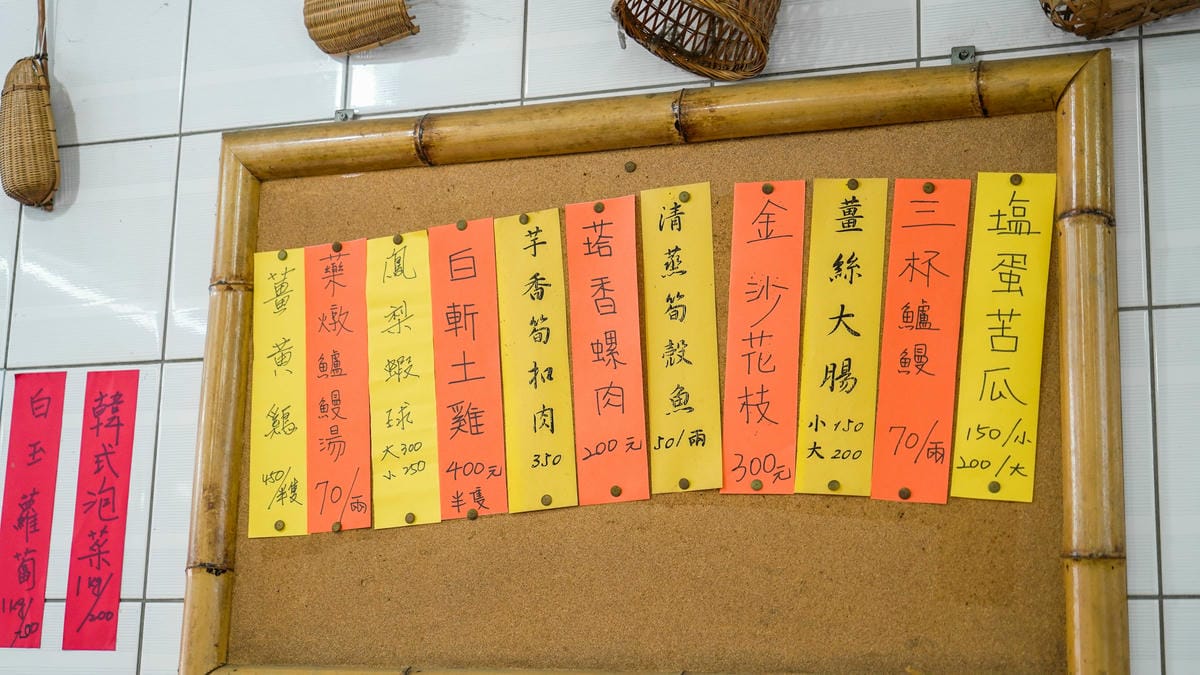 塩蛋苦瓜
150/小
200/大
三杯鱸鰻
70/兩
薑絲大腸
小150
大200
金沙花枝
300元
清蒸筍殼魚
50/兩
塔香螺肉
200元
芋香筍扣肉
350
白斬土雞
400元
半隻
鳳梨蝦球
大300
小250
藥燉鱸鰻湯
70/兩
薑黃雞
450/半隻
韓式泡菜
1kg/200
白玉蘿蔔
1kg/200